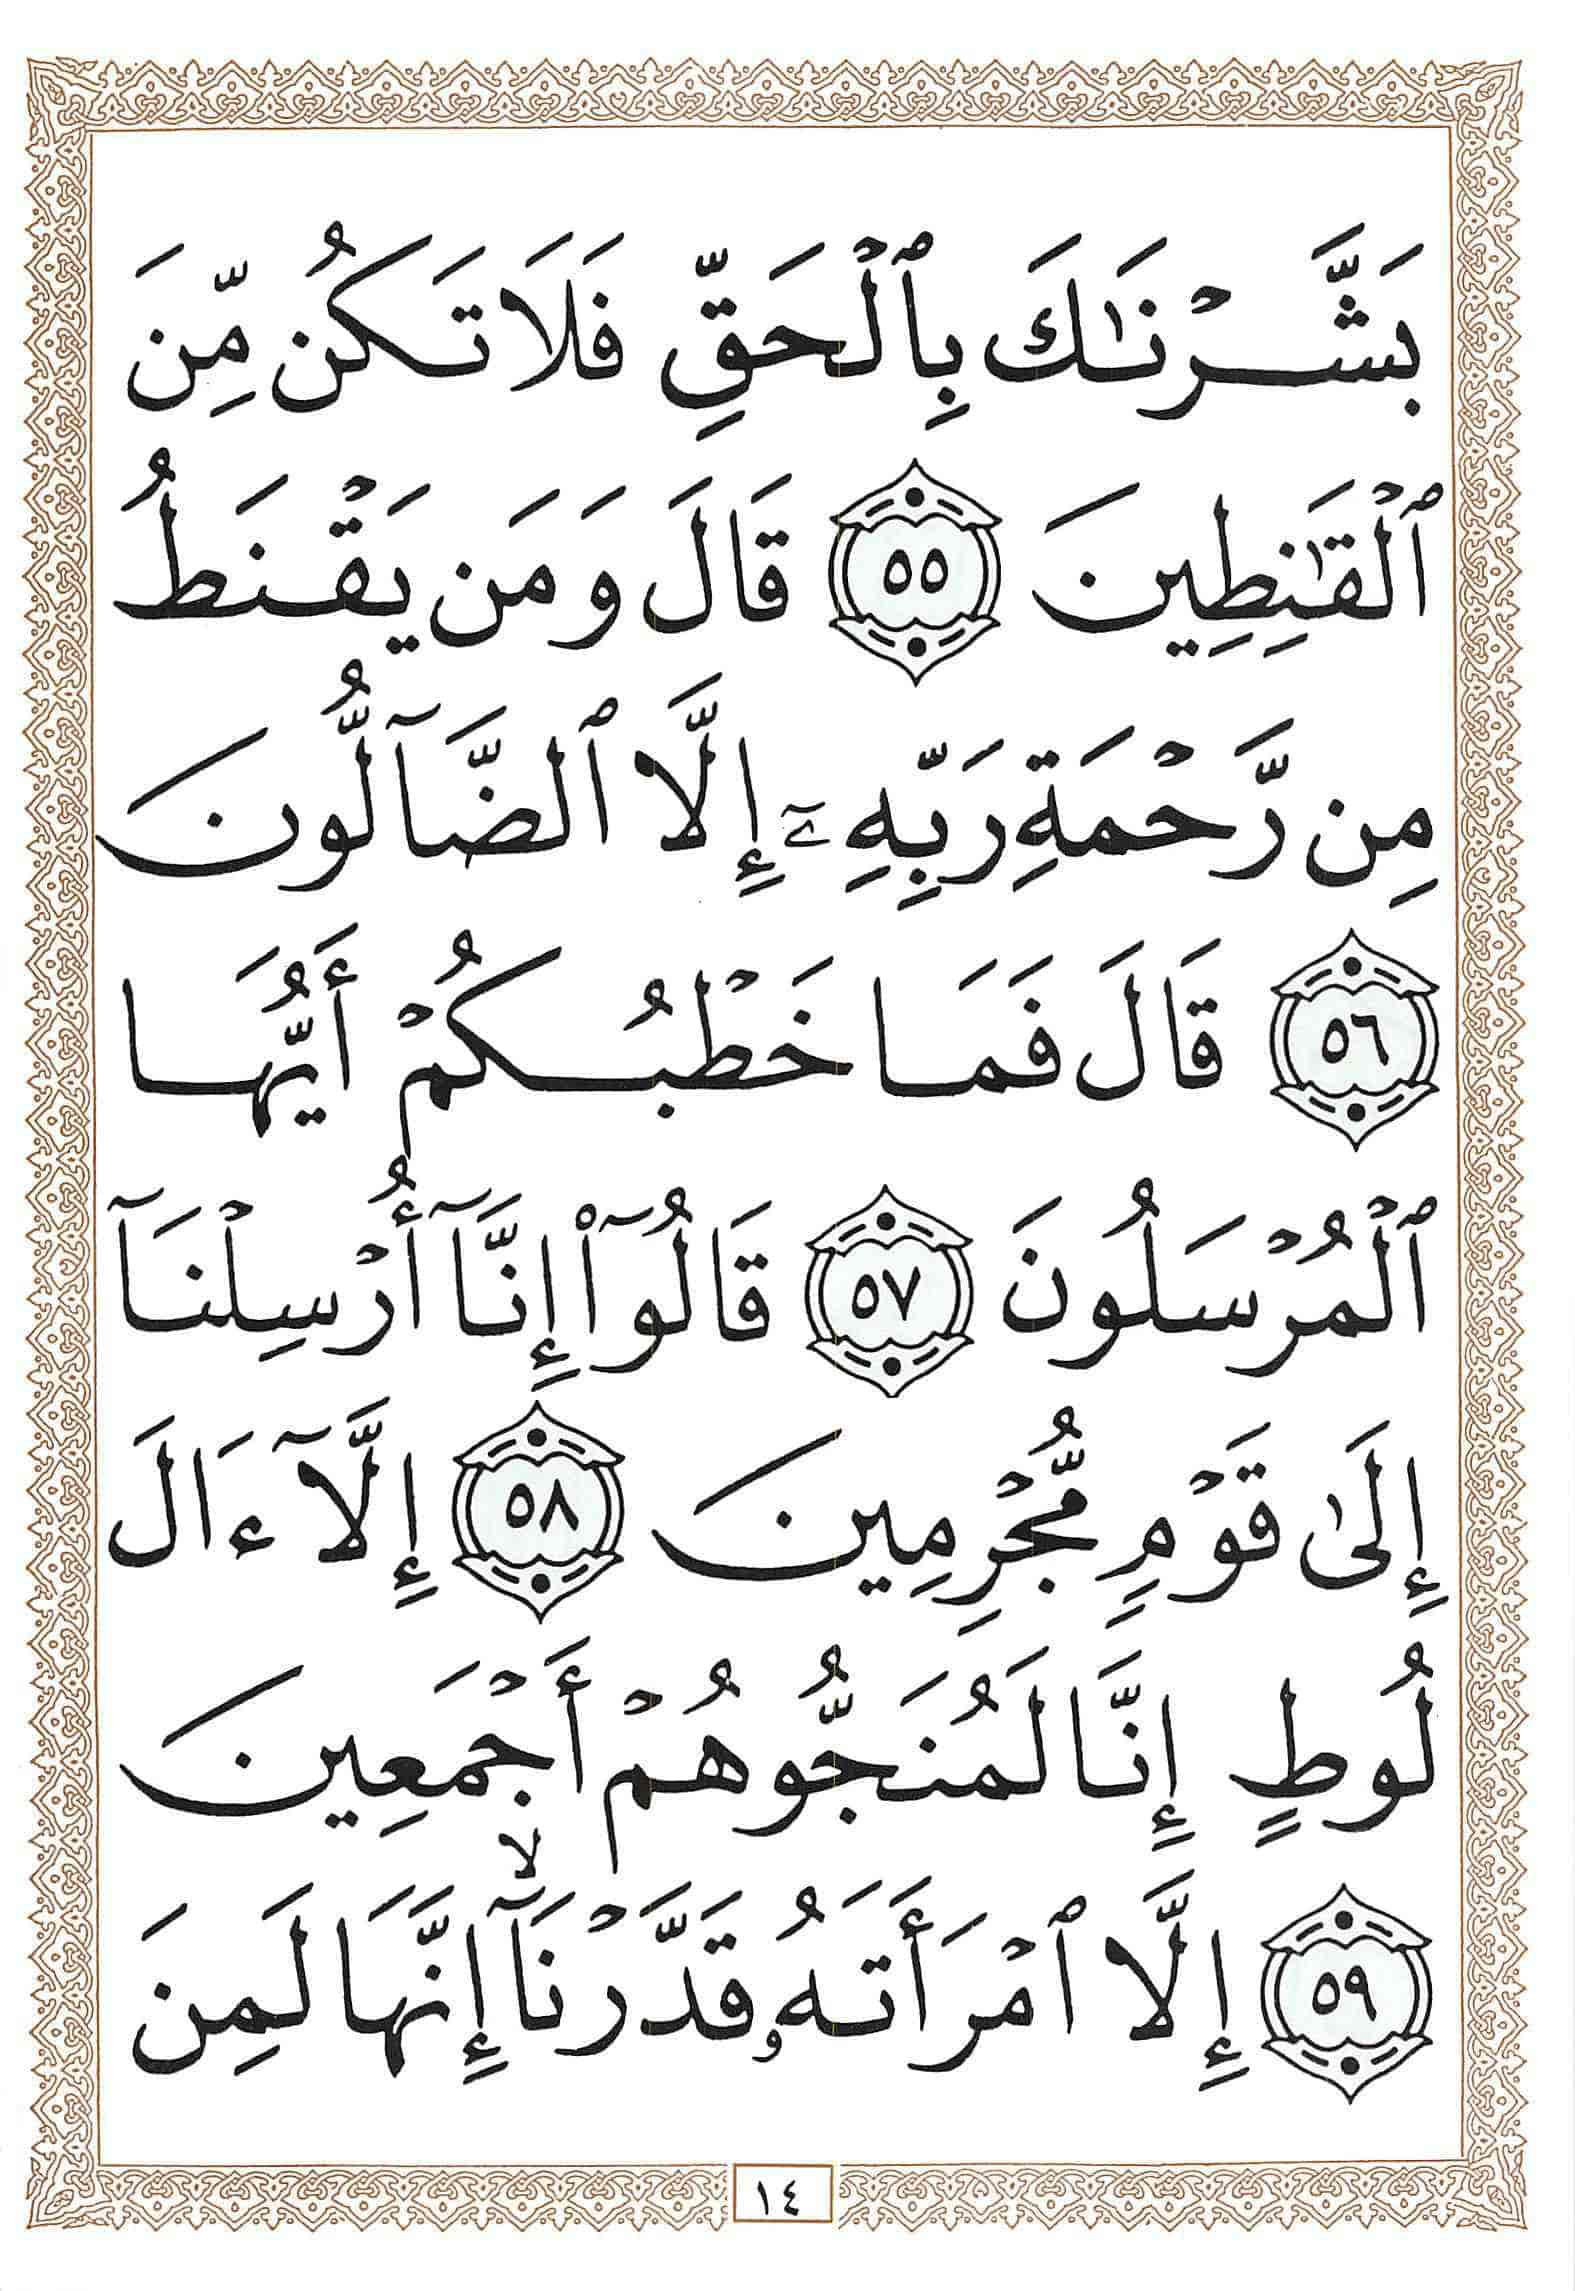 بَشَّرْنَٰكَ بِٱلْحَقِّ فَلَا تَكُن مِّنَ
ٱلْقَٰنِطِينَ ٥٥ قَالَ وَمَن يَقْنَطُ
مِن رَّحْمَةِ رَبِّهِۦٓ إِلَّا ٱلضَّآلُّونَ
٥٦ قَالَ فَمَا خَطْبُكُمْ أَيُّهَا
ٱلْمُرْسَلُونَ ٥٧ قَالُوٓا۟ إِنَّآ أُرْسِلْنَآ
إِلَىٰ قَوْمٍ مُّجْرِمِينَ ٥٨ إِلَّآ ءَالَ
لُوطٍ إِنَّا لَمُنَجُّوهُمْ أَجْمَعِينَ
٥٩ إِلَّا ٱمْرَأَتَهُۥ قَدَّرْنَآ ۙ إِنَّهَا لَمِنَ
١٤